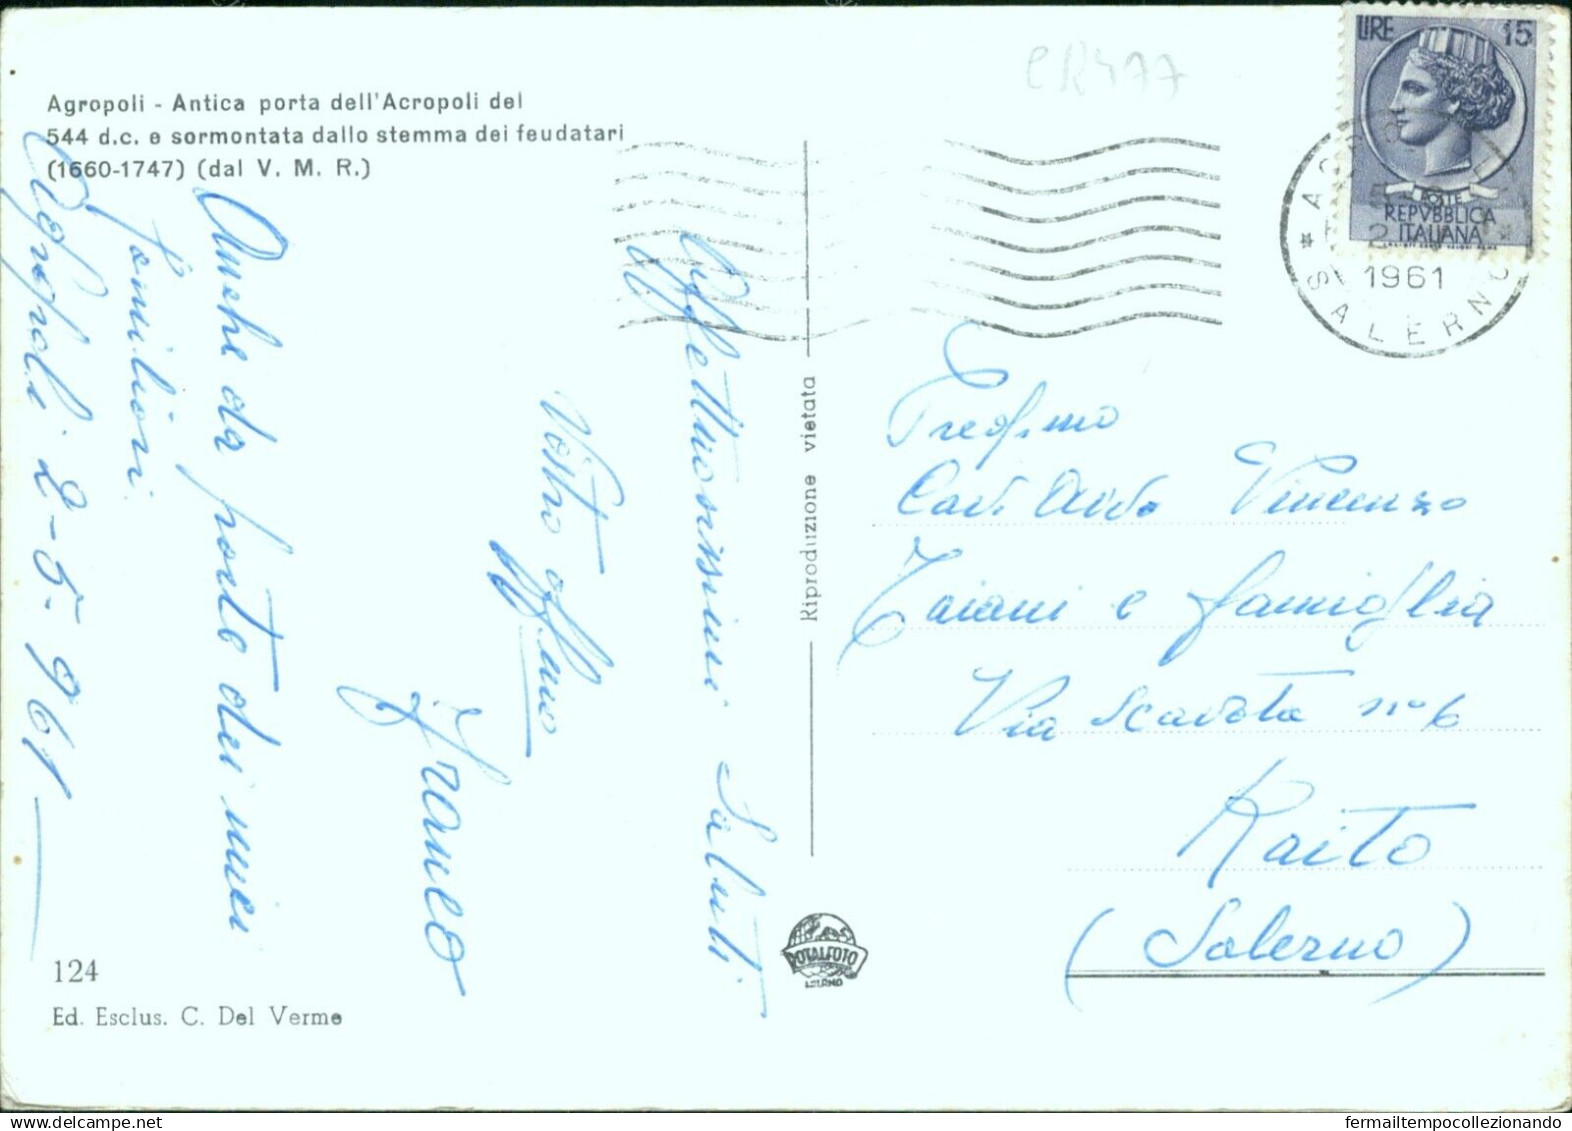 CR477
Agropoli - Antica porta dell'Acropoli del
544 d.c. e sormontata dallo stemma dei feudatari
(1660-1747) (dal V. M. R.)
LIRE 15
POSTE
REPVBBLICA
ITALIANA
1961
SALERNO
Affettuosissimi Saluti
Vostro aff.mo
Franco
Anche da parte dei miei
familiari
Agropoli 2-5-961
Riproduzione vietata
Preg.mo
Cav. Vincenzo
Taiani e famiglia
Via Scavata n° 6
Raito
(Salerno)
ROTALFOTO
MILANO
124
Ed. Esclus. C. Del Verme
fermailtempocollezionando